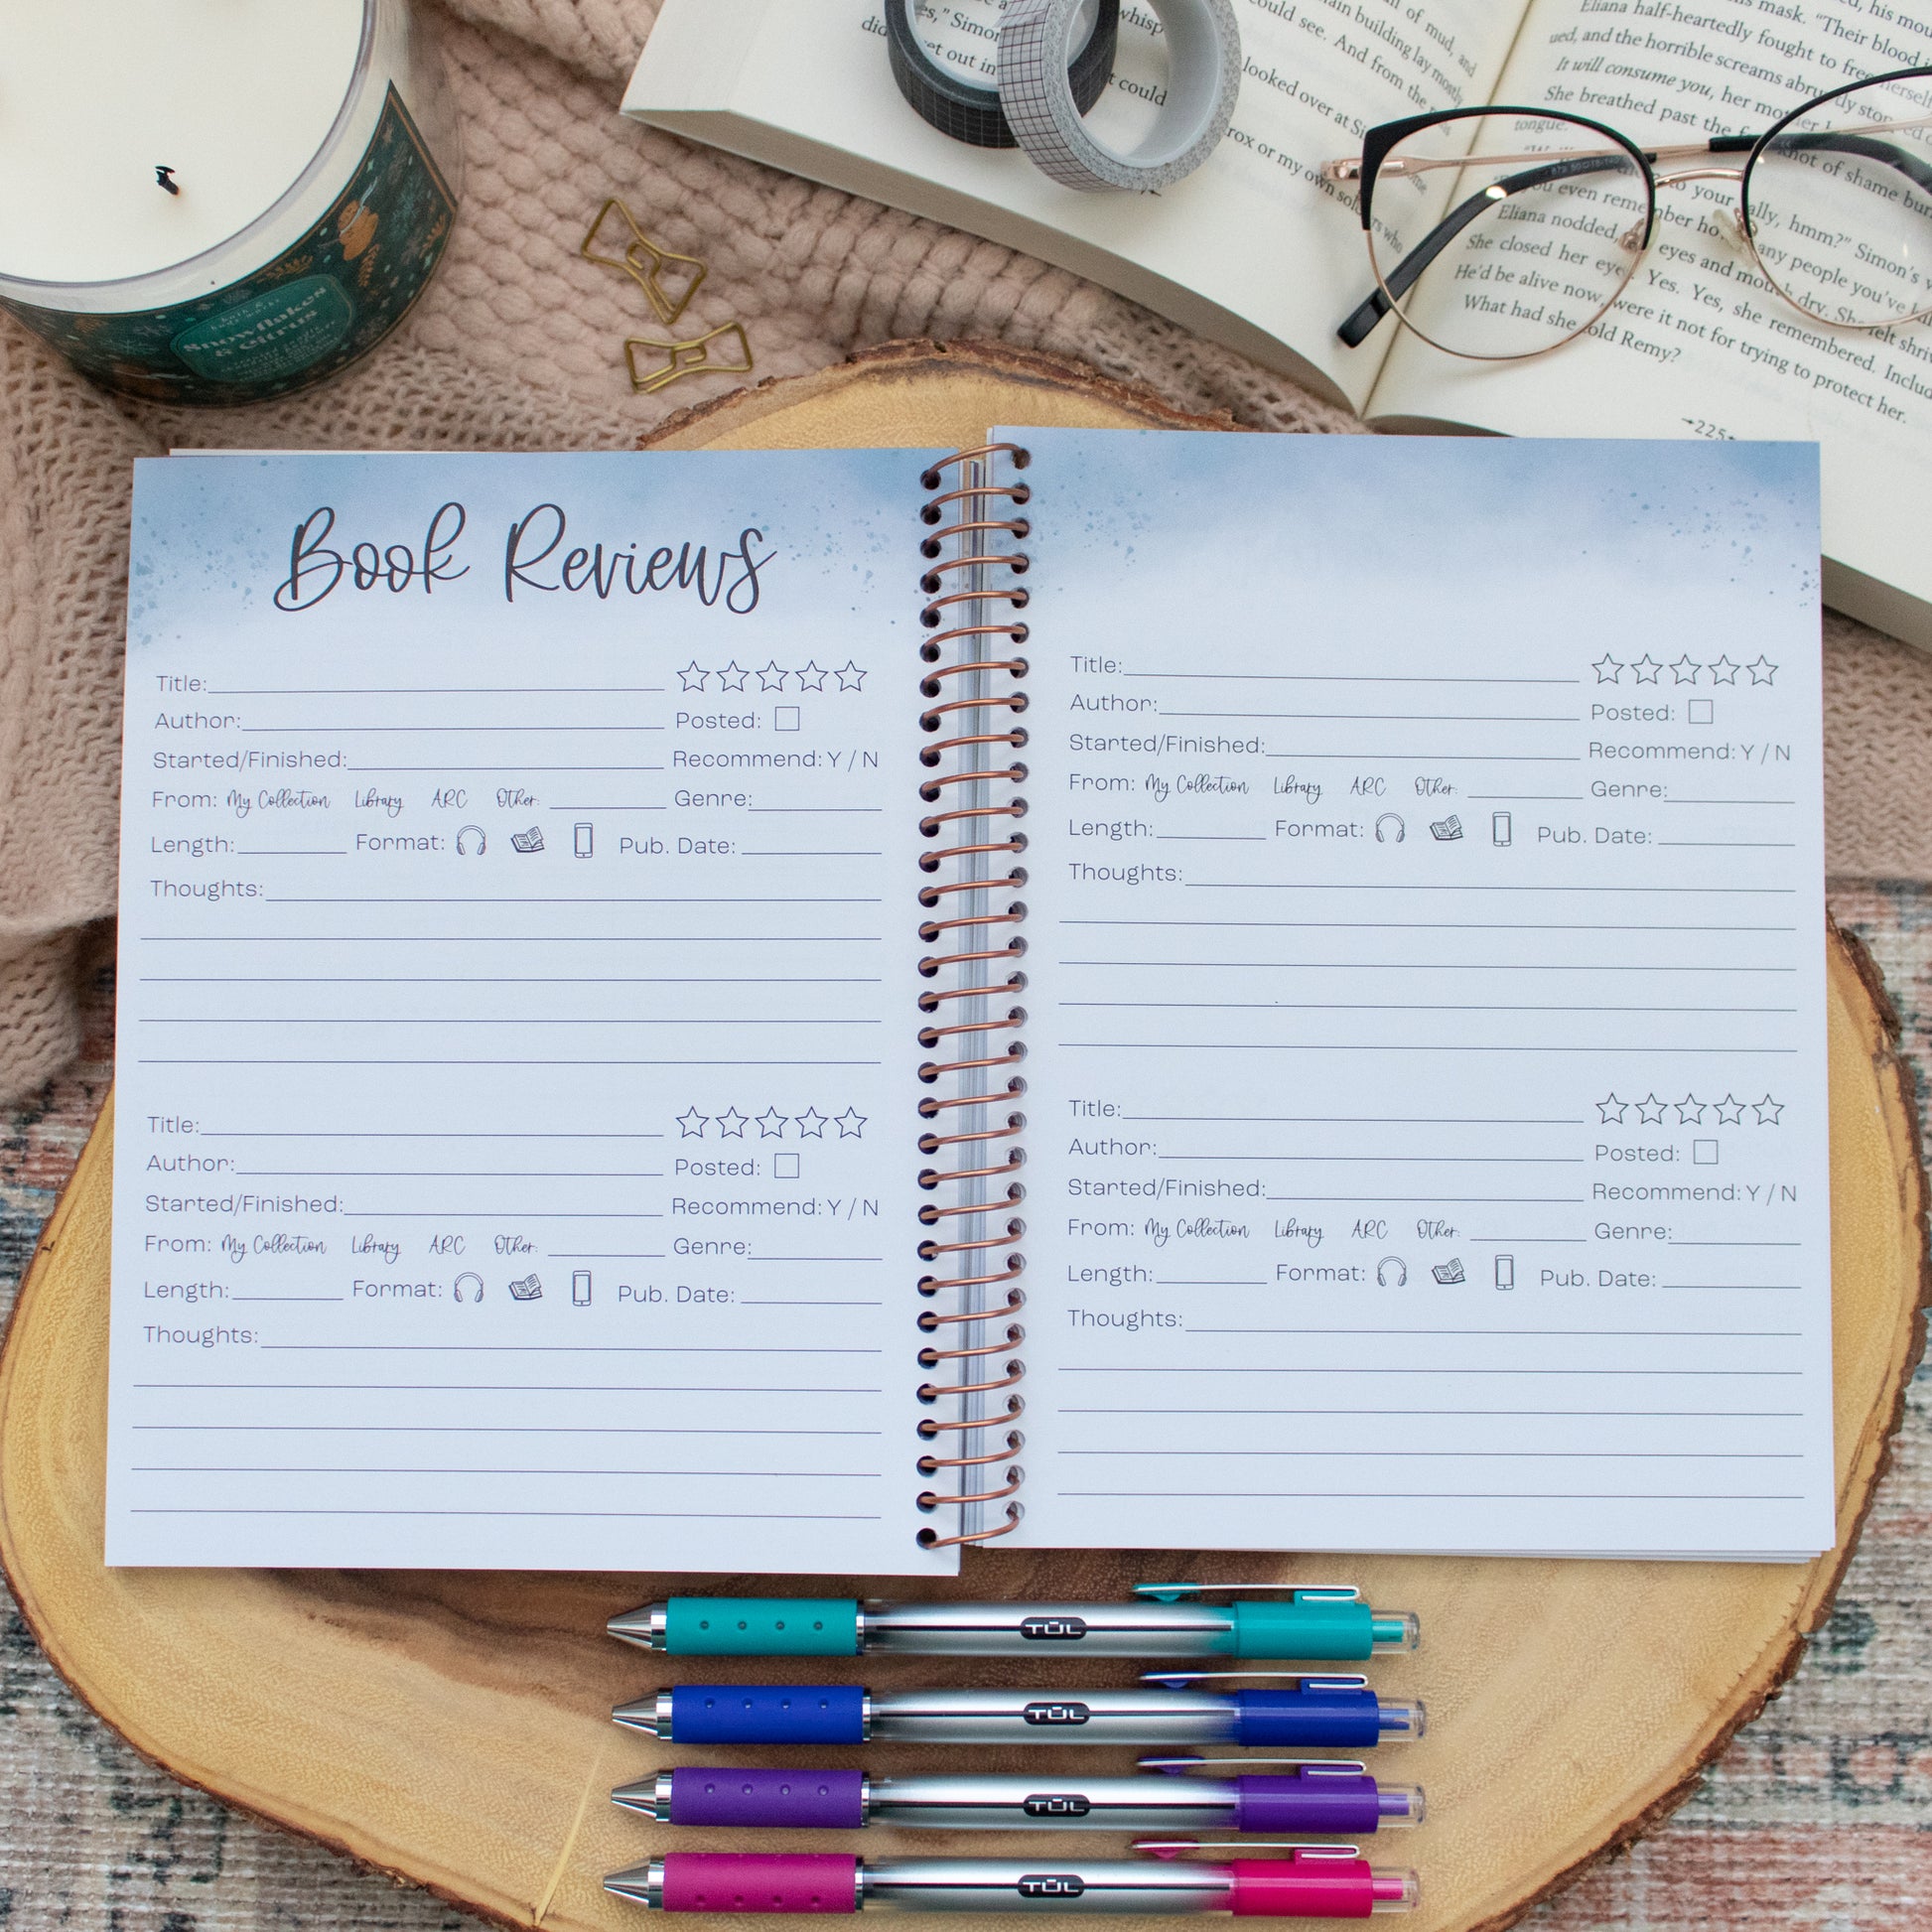 Snowflakes
& Citrus
es," Simon
whisp
could see. And from the
looked over at Si
t could
rox or my own soldiers who
of mud, and
main building lay mostly
Eliana half-heartedly fought to free herself
ued, and the horrible screams abruptly stopped
It will consume you, her mother
She breathed past the
knot of shame bur
tongue.
you even remember how many people you've
to your
ally, hmm?" Simon's
Eliana nodded,
eyes and mouth dry. She felt
She closed her eyes. Yes. Yes, she remembered. Includ
He'd be alive now, were it not for trying to protect her.
What had she told Remy?
225
Book Reviews
Title:
Author:
Posted:
Started/Finished:
Recommend: Y / N
From: My Collection Library ARC Other:
Genre:
Length:
Format:
Pub. Date:
Thoughts:
Title:
Author:
Posted:
Started/Finished:
Recommend: Y / N
From: My Collection Library ARC Other:
Genre:
Length:
Format:
Pub. Date:
Thoughts:
Title:
Author:
Posted:
Started/Finished:
Recommend: Y / N
From: My Collection Library ARC Other:
Genre:
Length:
Format:
Pub. Date:
Thoughts:
Title:
Author:
Posted:
Started/Finished:
Recommend: Y / N
From: My Collection Library ARC Other:
Genre:
Length:
Format:
Pub. Date:
Thoughts:
TŪL
TŪL
TŪL
TŪL